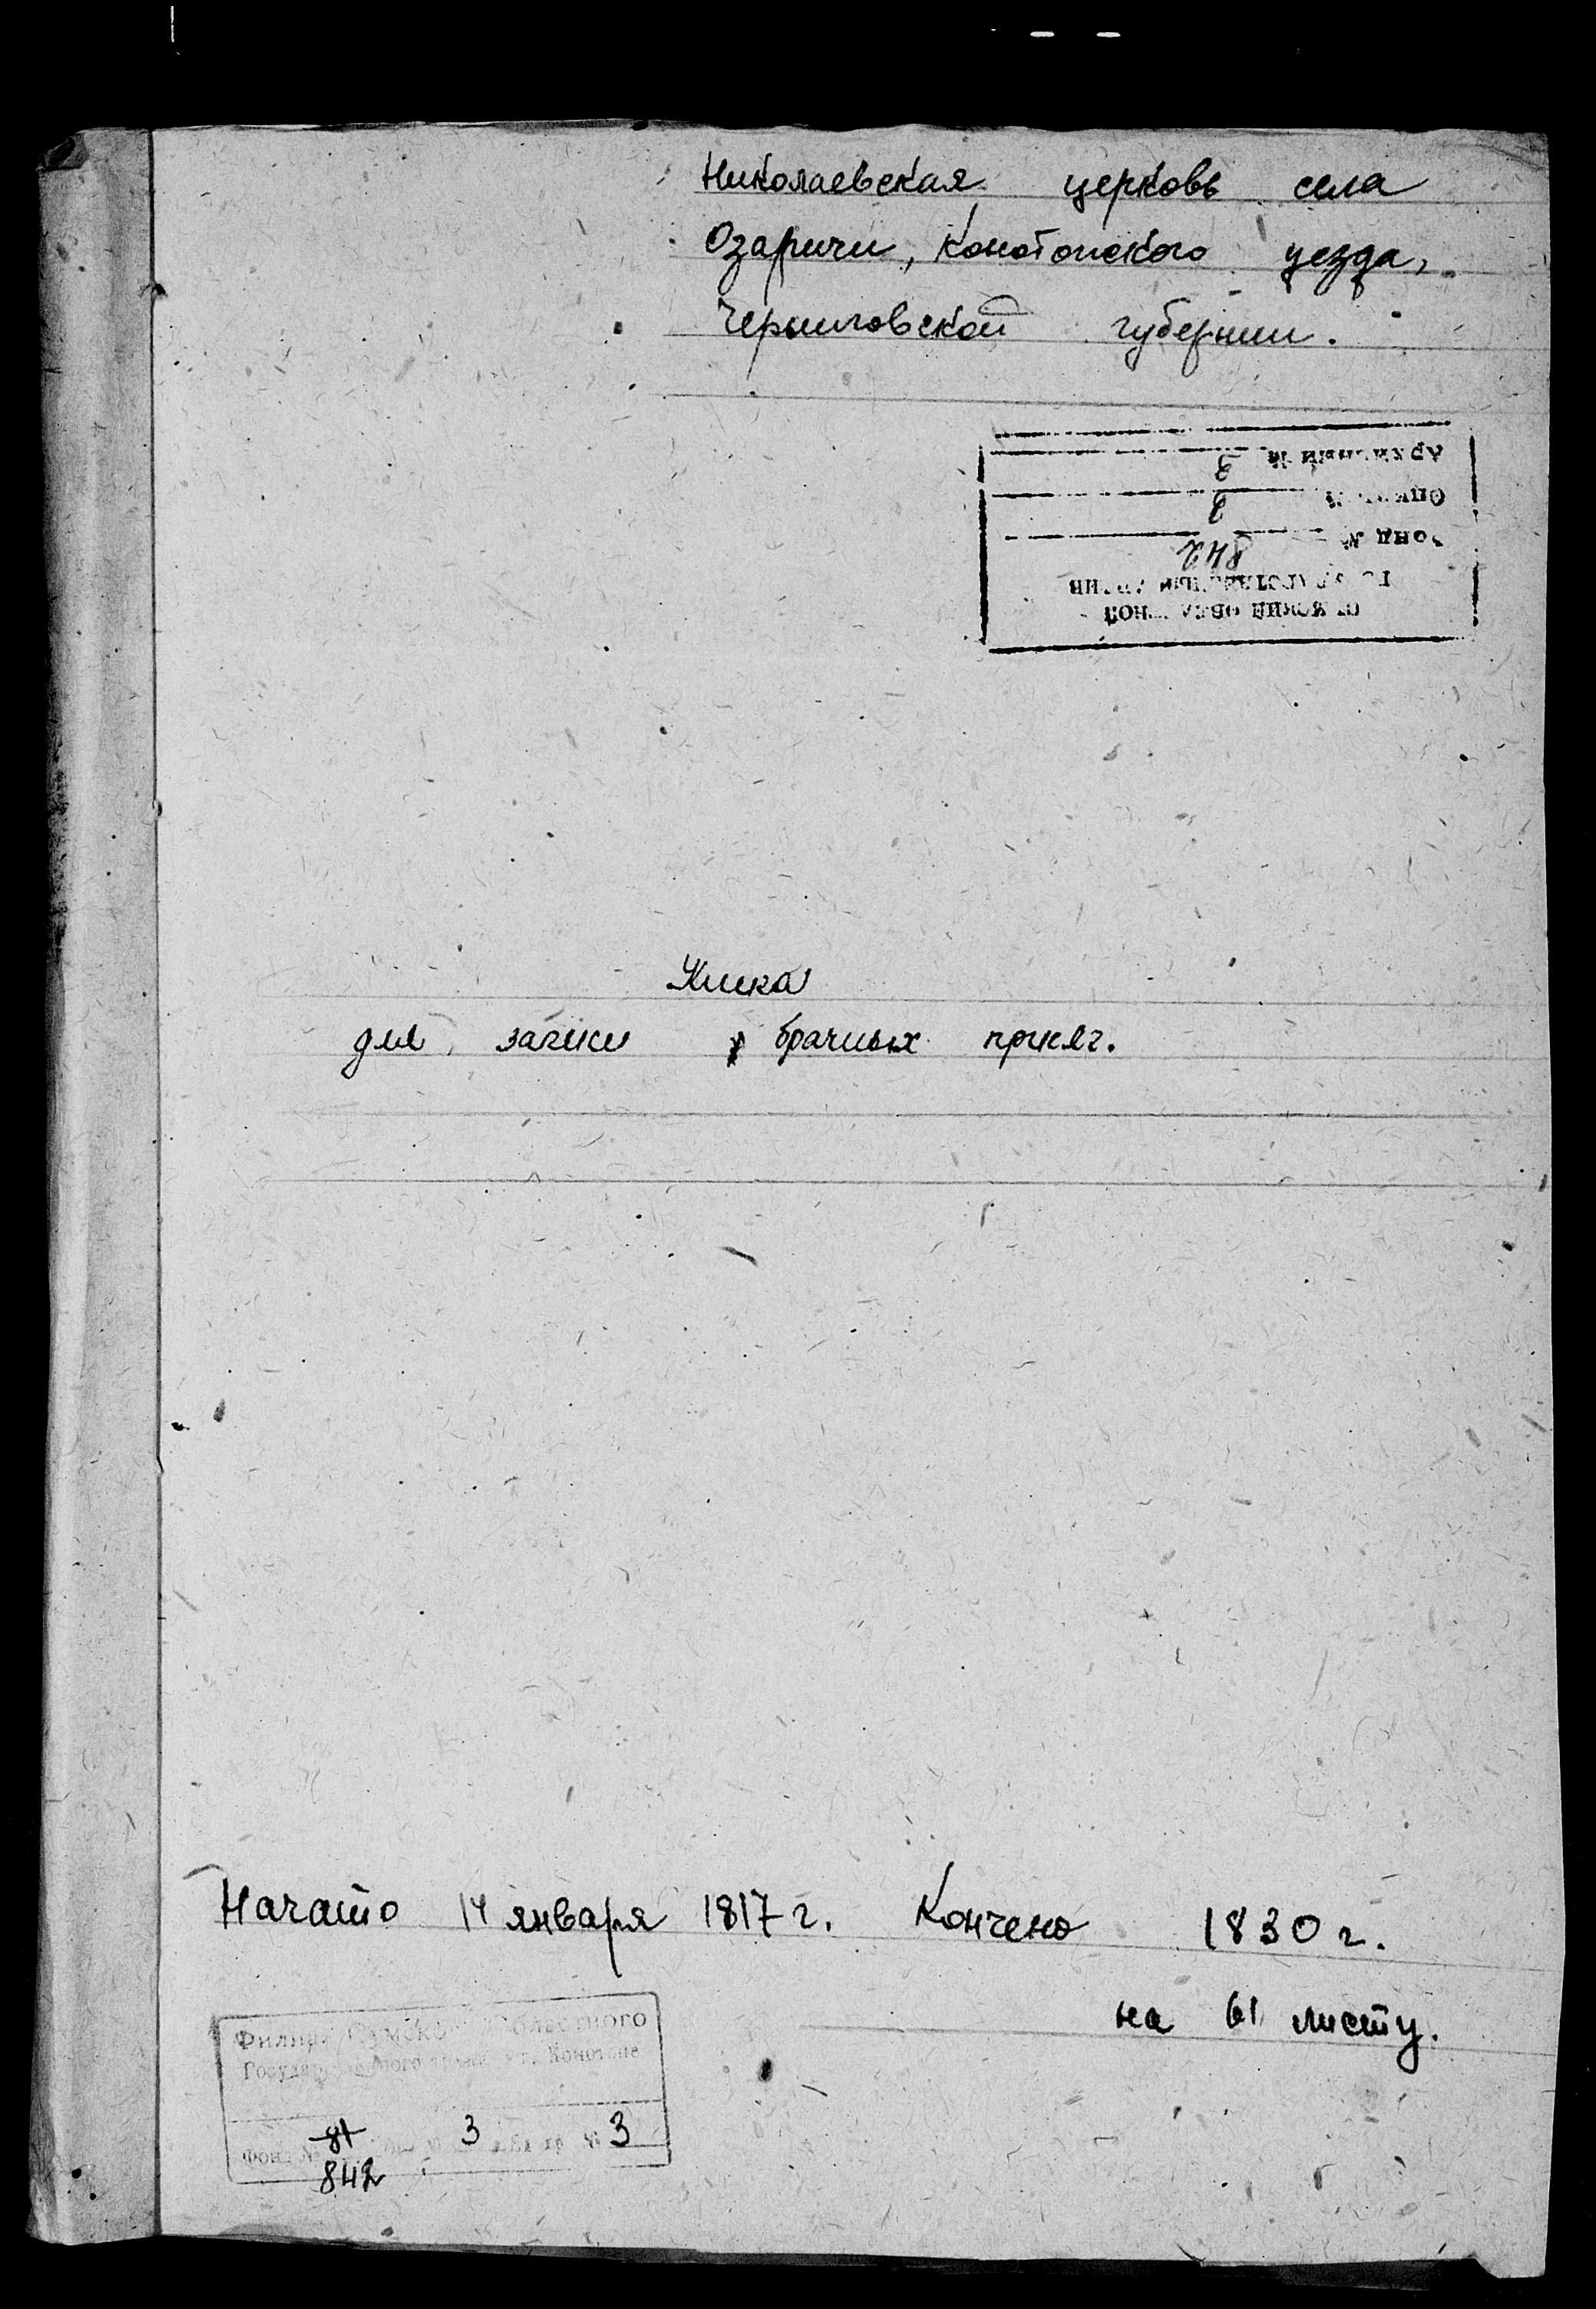 Николаевская церковь села
Озаричи, Конотопского уезда,
Черниговской губернии.
Архивный №
3
1
Фонд №
842
Книга
для записи брачных
Начато 14 января 1817 г. Кончено 1830 г.
на 61 листу.
Филиал Сумского Областного
Государственного архива в г. Конотопе
Фонд № 81 3 3
842